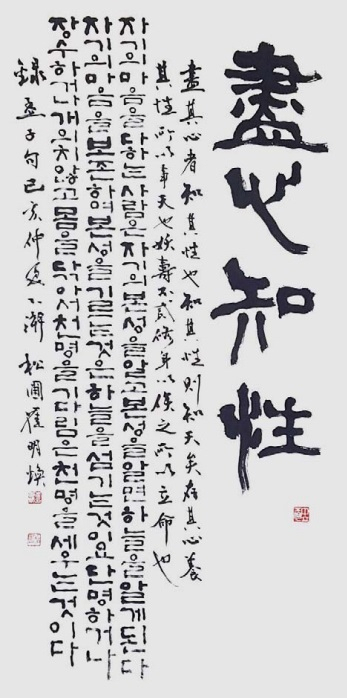 盡心知性
盡其心者知其性也知其性則知天矣存其心養
其性所以事天也殀壽不貳修身以俟之所以立命也
자기의마음을다하는사람은자기의본성을알고본성을알면하늘을알게된다
자기의마음을보존하여본성을기르는것은하늘을섬기는것이요단명하거나
장수하거나개의치않고몸을닦아서천명을기다림은천명을세우는것이다
錄孟子句己亥仲夏下澣 松圃崔明煥